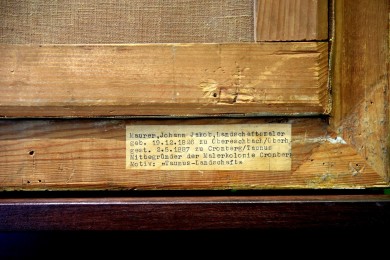 Maurer,Johann Jakob,Landschaftsmaler
geb. 19.12.1826 zu Obereschbach/Oberh.
gest. 2.5.1887 zu Cronberg/Taunus
Mitbegründer der Malerkolonie Cronberg
Motiv: »Taunus-Landschaft«